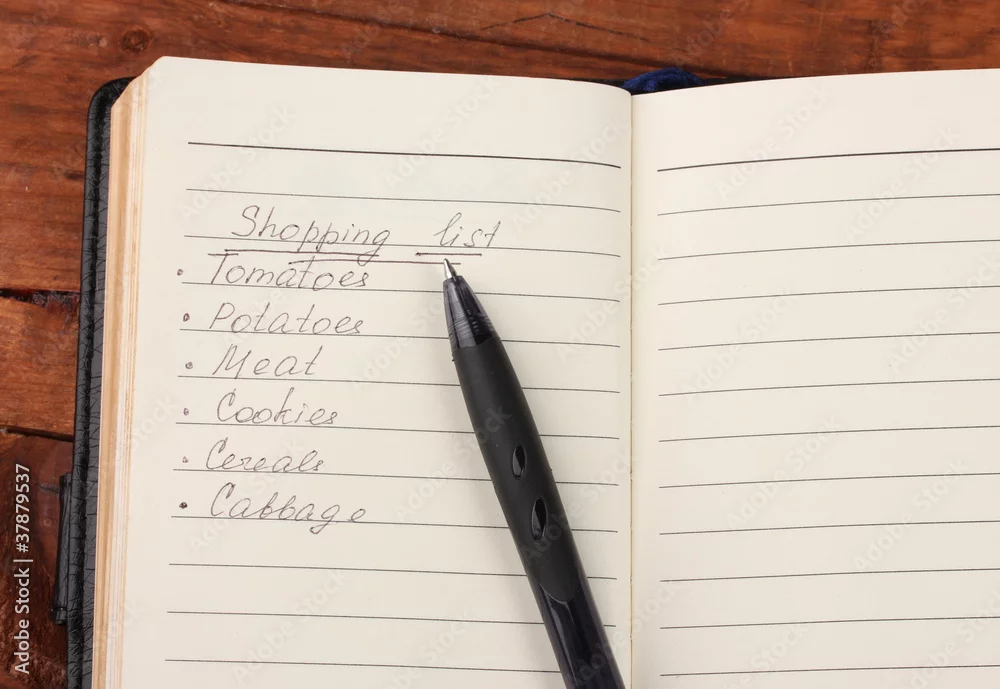 Shopping list
• Tomatoes
• Potatoes
• Meat
• Cookies
• Cereals
• Cabbage
Adobe Stock | #37879537